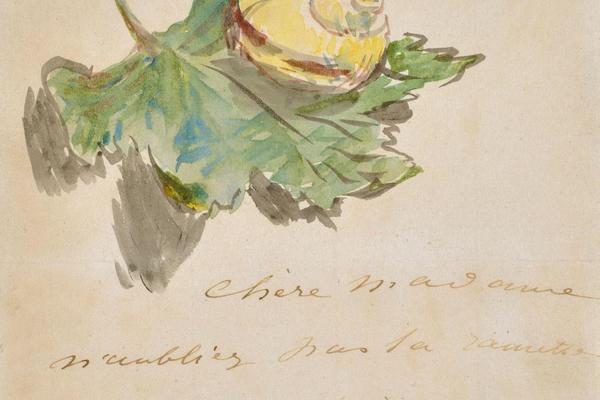 Chère Madame
n'oubliez pas la ramette